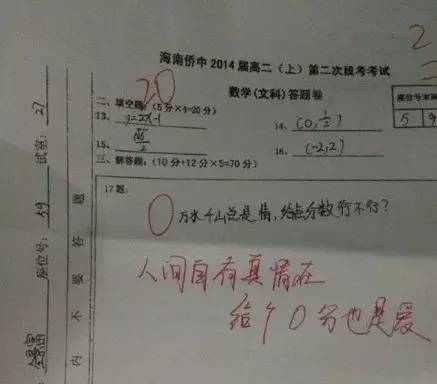 海南侨中2014届高二（上）第二次段考考试
数学(文科)答题卷
20
二、填空题：(5分×4=20分)
13、y=2x-1
14、(0,½)
15、
16、(-2,2)
三、解答题：(10分+12分×5=70分)
17题：
0
万水千山总是情，给点分数行不行？
人间自有真情在
给个0分也是爱
座位号
5 9
试室：27
座位号：59
内不要答题